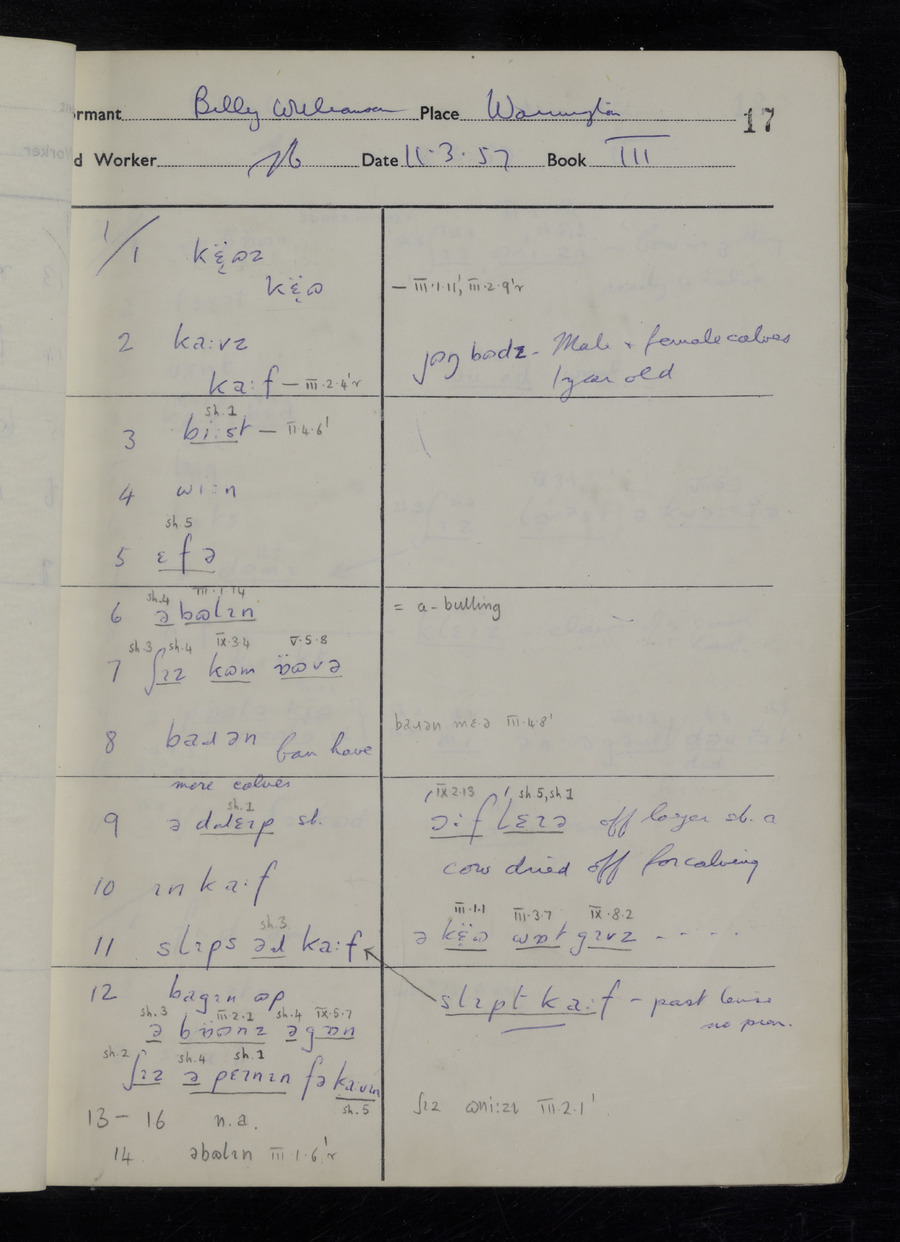 rmant Billy Williamson Place Warrington 17
d Worker Date 11·3·57 Book III
1/1 kɛ̣̈ʊz
kɛ̣̈ʊ — III·1·11', III·2·9'r
2 ka:vz jʊŋ bʊdz - Male + female calves
ka:f — III·2·4'r 1 year old
sh.1
3 bi:st — II·4·6'
4 wi:n
sh.5
5 ɛfə
sh.4 III·1·14
6 əbʊlɪn = a-bulling
sh.3 sh.4 IX·3·4 V·5·8
7 ʃɪz kʊm ɒ̈ʊvə
baɹən mɛə III·4·8'
8 baɹən can have
more calves
sh.1 IX·2·13 sh 5, sh 1
9 ə dɹɛɪp sb. ɔ:f lɛɪə off layer sb. a
cow dried off for calving
10 ɪn ka:f
sh.3 III·1·1 III·3·7 IX·8·2
11 slɪps əɹ ka:f ə kɛ̣̈ʊ wɒt gɪvz - - - -
12 bagɪn ʊp slɪpt ka:f - past tense
sh.3 III·2·1 sh.4 IX·5·7 no pron.
ə bɒ̈ʊnz əgɒn
sh.2 sh.4 sh.1
ʃɪz ə pɛɪnɪn fə ka:vɪn
sh.5
ʃɪz ʊni:zɪ III·2·1'
13 – 16 n.a.
14 əbʊlɪn III·1·6'r